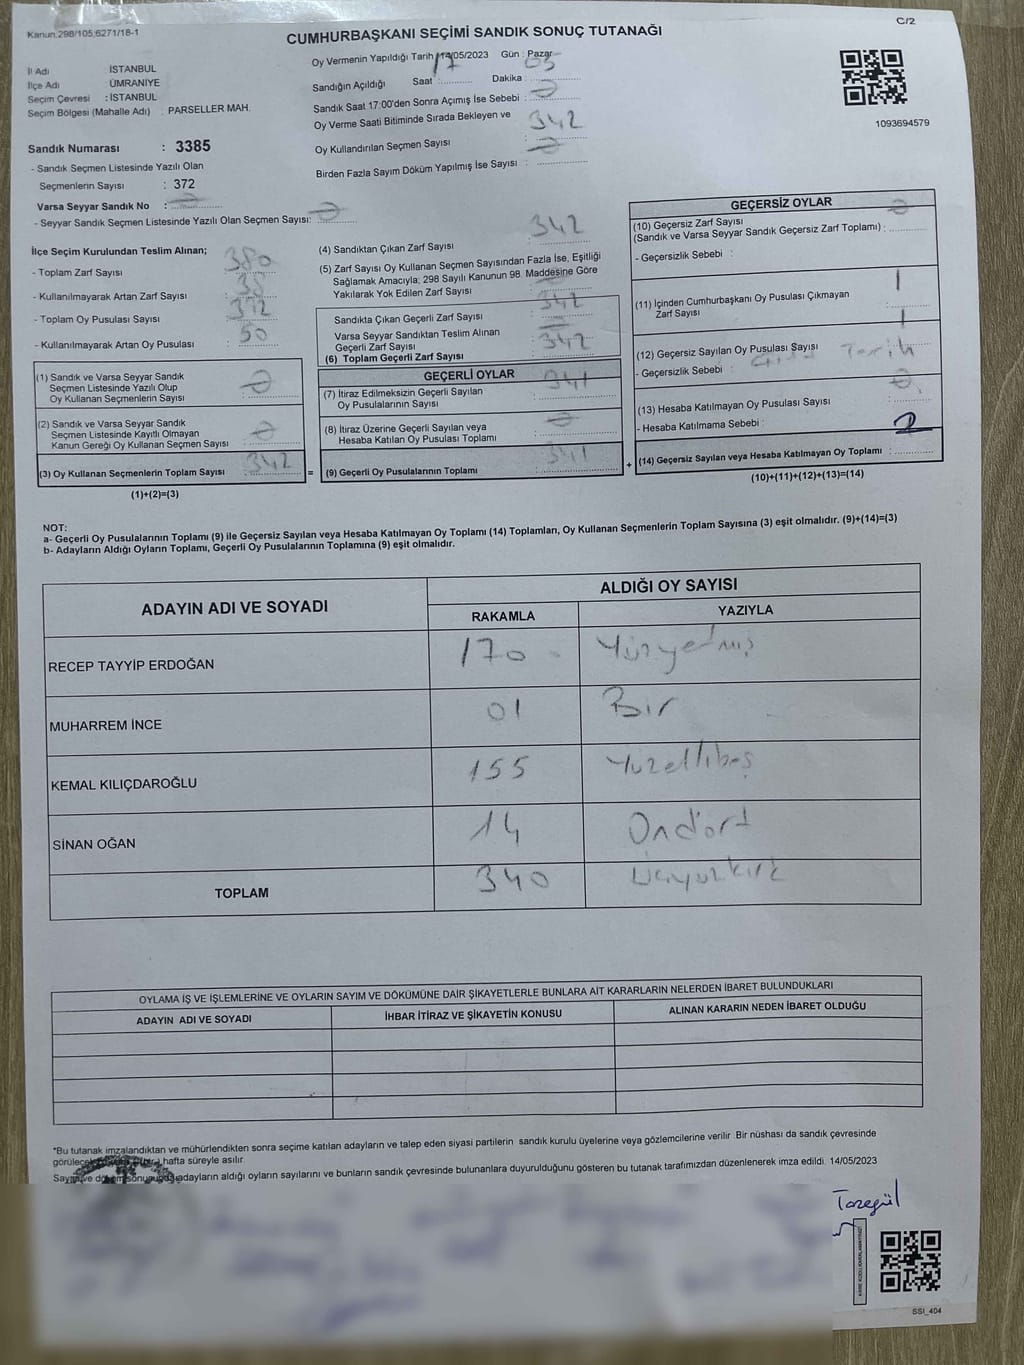 Kanun:298/105;6271/18-1
C/2
CUMHURBAŞKANI SEÇİMİ SANDIK SONUÇ TUTANAĞI
İl Adı : İSTANBUL
İlçe Adı : ÜMRANİYE
Seçim Çevresi : İSTANBUL
Seçim Bölgesi (Mahalle Adı) : PARSELLER MAH.
Sandık Numarası : 3385
- Sandık Seçmen Listesinde Yazılı Olan
Seçmenlerin Sayısı : 372
Varsa Seyyar Sandık No :
- Seyyar Sandık Seçmen Listesinde Yazılı Olan Seçmen Sayısı:
Oy Vermenin Yapıldığı Tarih 14/05/2023 Gün : Pazar
Sandığın Açıldığı Saat : 17 Dakika : 03
Sandık Saat 17:00'den Sonra Açımış İse Sebebi :
Oy Verme Saati Bitiminde Sırada Bekleyen ve
Oy Kullandırılan Seçmen Sayısı : 342
Birden Fazla Sayım Döküm Yapılmış İse Sayısı :
1093694579
İlçe Seçim Kurulundan Teslim Alınan;
- Toplam Zarf Sayısı : 380
- Kullanılmayarak Artan Zarf Sayısı : 38
- Toplam Oy Pusulası Sayısı : 392
- Kullanılmayarak Artan Oy Pusulası : 50
(1) Sandık ve Varsa Seyyar Sandık
Seçmen Listesinde Yazılı Olup
Oy Kullanan Seçmenlerin Sayısı
(2) Sandık ve Varsa Seyyar Sandık
Seçmen Listesinde Kayıtlı Olmayan
Kanun Gereği Oy Kullanan Seçmen Sayısı
(3) Oy Kullanan Seçmenlerin Toplam Sayısı : 342
(1)+(2)=(3)
=
(4) Sandıktan Çıkan Zarf Sayısı : 342
(5) Zarf Sayısı Oy Kullanan Seçmen Sayısından Fazla İse, Eşitliği
Sağlamak Amacıyla; 298 Sayılı Kanunun 98. Maddesine Göre
Yakılarak Yok Edilen Zarf Sayısı
Sandıkta Çıkan Geçerli Zarf Sayısı : 342
Varsa Seyyar Sandıktan Teslim Alınan
Geçerli Zarf Sayısı
(6) Toplam Geçerli Zarf Sayısı : 342
GEÇERLİ OYLAR
(7) İtiraz Edilmeksizin Geçerli Sayılan
Oy Pusulalarının Sayısı : 341
(8) İtiraz Üzerine Geçerli Sayılan veya
Hesaba Katılan Oy Pusulası Toplamı
(9) Geçerli Oy Pusulalarının Toplamı : 341
+
GEÇERSİZ OYLAR
(10) Geçersiz Zarf Sayısı
(Sandık ve Varsa Seyyar Sandık Geçersiz Zarf Toplamı) :
- Geçersizlik Sebebi :
(11) İçinden Cumhurbaşkanı Oy Pusulası Çıkmayan
Zarf Sayısı : 1
(12) Geçersiz Sayılan Oy Pusulası Sayısı : 1
- Geçersizlik Sebebi : Tarih
(13) Hesaba Katılmayan Oy Pusulası Sayısı
- Hesaba Katılmama Sebebi :
(14) Geçersiz Sayılan veya Hesaba Katılmayan Oy Toplamı : 2
(10)+(11)+(12)+(13)=(14)
NOT:
a- Geçerli Oy Pusulalarının Toplamı (9) ile Geçersiz Sayılan veya Hesaba Katılmayan Oy Toplamı (14) Toplamları, Oy Kullanan Seçmenlerin Toplam Sayısına (3) eşit olmalıdır. (9)+(14)=(3)
b- Adayların Aldığı Oyların Toplamı, Geçerli Oy Pusulalarının Toplamına (9) eşit olmalıdır.
ADAYIN ADI VE SOYADI
ALDIĞI OY SAYISI
RAKAMLA YAZIYLA
RECEP TAYYİP ERDOĞAN 170 Yüzyetmiş
MUHARREM İNCE 01 Bir
KEMAL KILIÇDAROĞLU 155 Yüzellibeş
SİNAN OĞAN 14 Ondört
TOPLAM 340 Üçyüzkırk
OYLAMA İŞ VE İŞLEMLERİNE VE OYLARIN SAYIM VE DÖKÜMÜNE DAİR ŞİKAYETLERLE BUNLARA AİT KARARLARIN NELERDEN İBARET BULUNDUKLARI
ADAYIN ADI VE SOYADI İHBAR İTİRAZ VE ŞİKAYETİN KONUSU ALINAN KARARIN NEDEN İBARET OLDUĞU
*Bu tutanak imzalandıktan ve mühürlendikten sonra seçime katılan adayların ve talep eden siyasi partilerin sandık kurulu üyelerine veya gözlemcilerine verilir Bir nüshası da sandık çevresinde
hafta süreyle asılır.
adayların aldığı oyların sayılarını ve bunların sandık çevresinde bulunanlara duyurulduğunu gösteren bu tutanak tarafımızdan düzenlenerek imza edildi. 14/05/2023
SSI_404